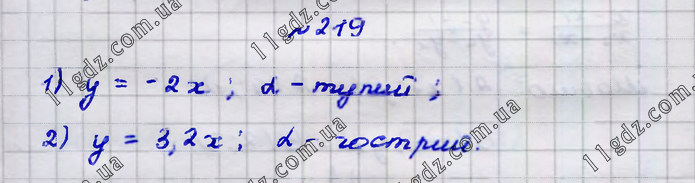 №219
1) y = -2x ; α - тупий ;
2) y = 3,2x ; α - гострий.
11gdz.com.ua
11gdz.com.ua
11gdz.com.ua
11gdz.com.ua
11gdz.com.ua